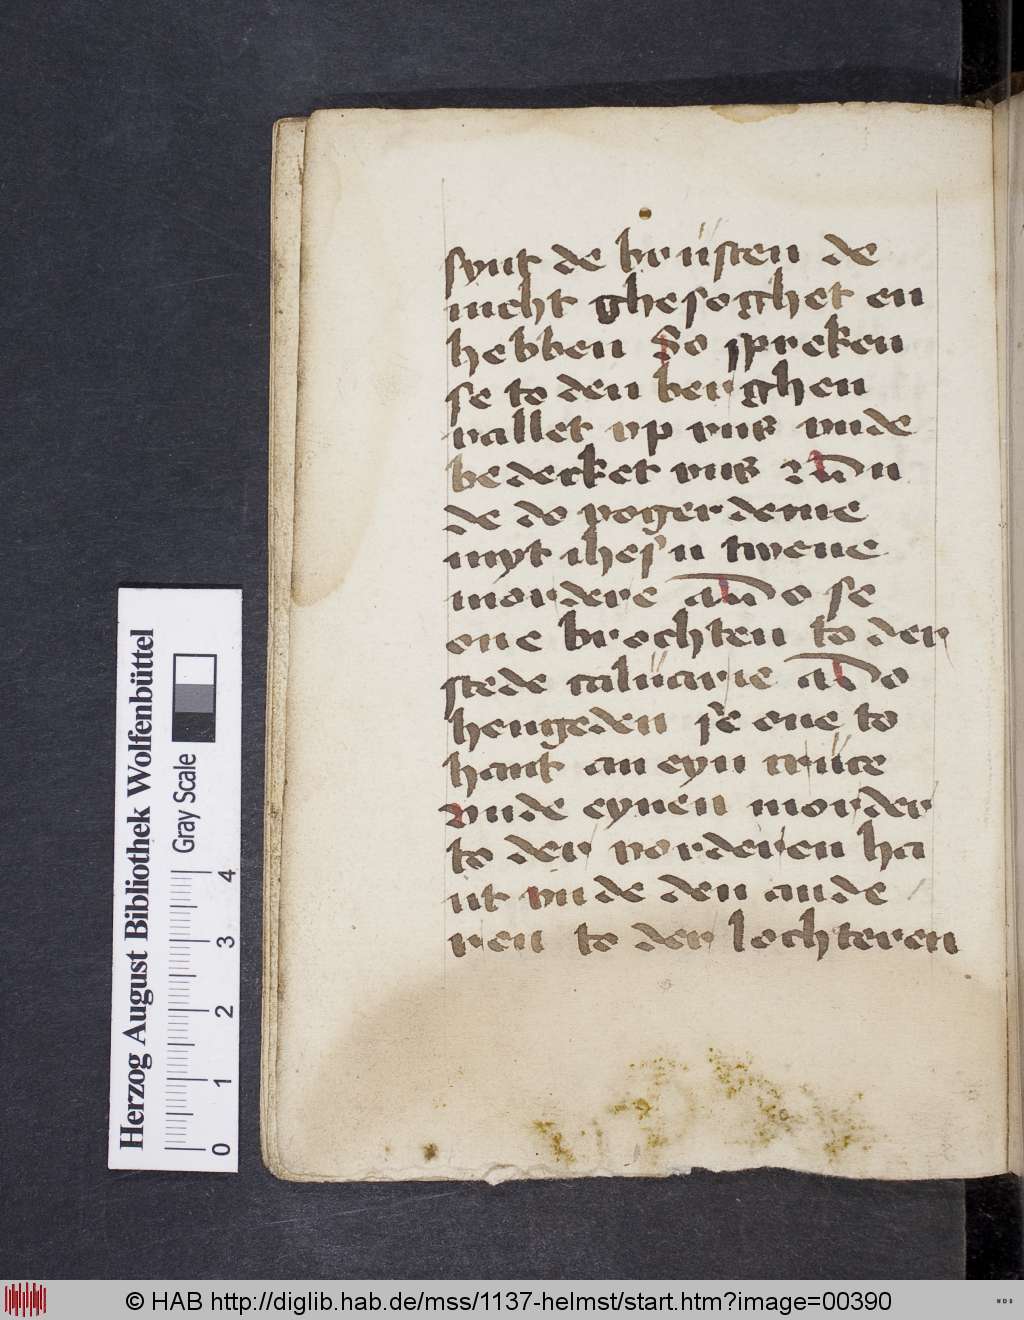 synt de brüsten de
nicht ghesoghet en
hebben So spreken
se to den berghen
vallet vp vns vnde
bedecket vns
de do voger deme
myt ihesu twene
mordere do se
one brochten to der
stede caluarie do
hengeden se one to
hant an eyn crüce
vnde eynen morder
to der vorderen ha
nt vnde den ande
ren to der lochteren
Herzog August Bibliothek Wolfenbüttel
Gray Scale
0 1 2 3 4
© HAB http://diglib.hab.de/mss/1137-helmst/start.htm?image=00390